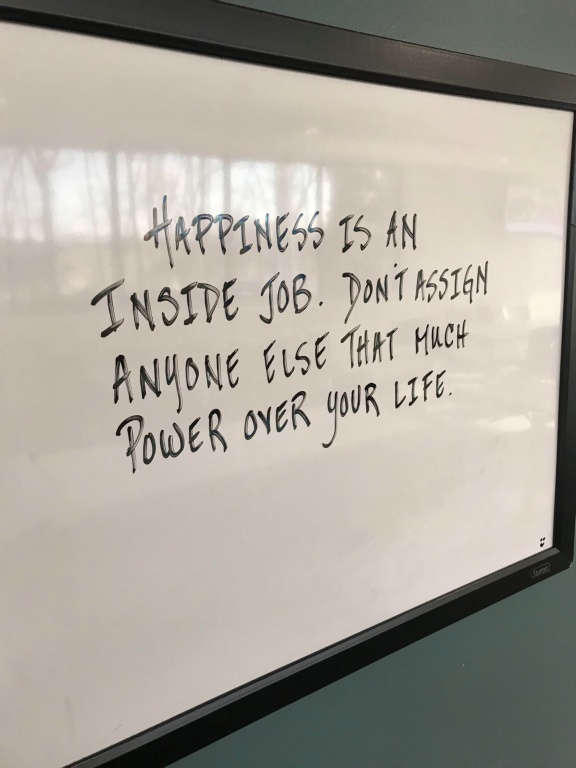 HAPPINESS IS AN
INSIDE JOB. DON'T ASSIGN
ANYONE ELSE THAT MUCH
POWER OVER YOUR LIFE.